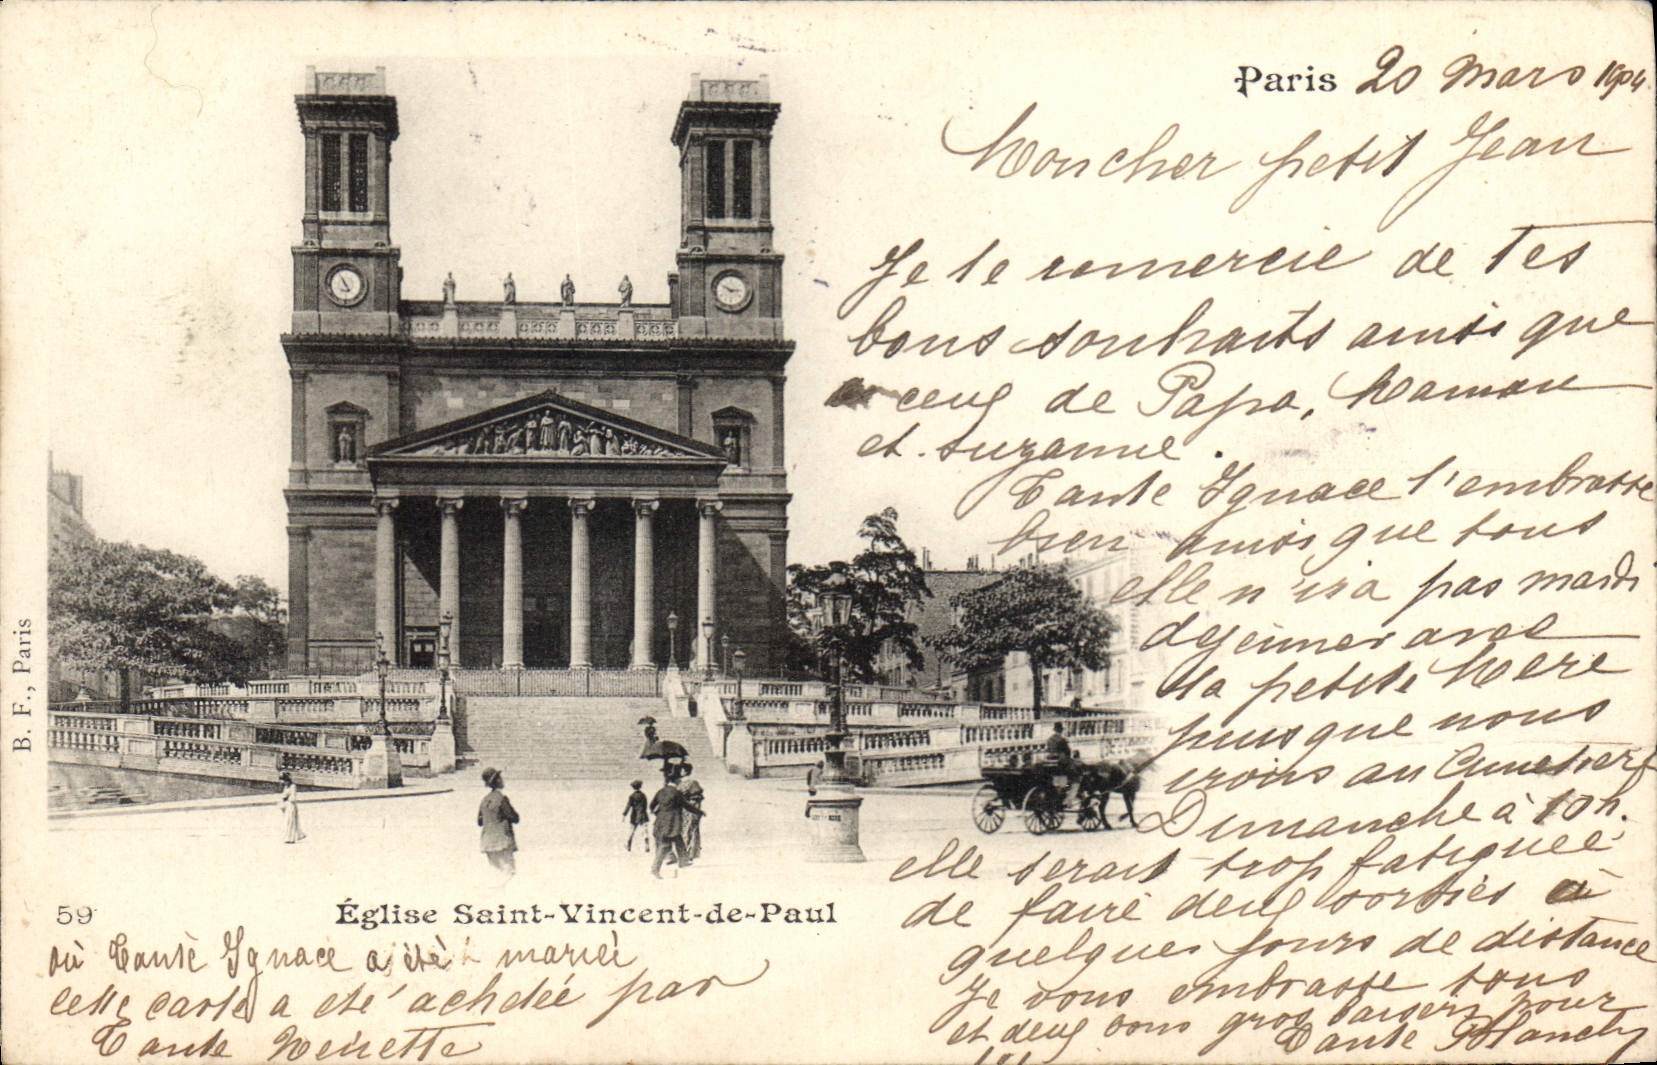 Paris 20 Mars 1904
Moncher petit Jean
Je te remercie de tes
bons souhaits ainsi que
ceux de Papa, Maman
et Suzanne.
Tante Ignace t'embrasse
bien ainsi que tous
elle n'ira pas mardi
dejeuner avec
la petite Mere
puisque nous
irons au Cimetiere
Dimanche à 10h.
elle serait trop fatiguée
de faire deux sorties à
quelques jours de distance
Je vous embrasse tous
et deux bons gros baisers pour
Tante Blanche
B. F., Paris
59 Église Saint-Vincent-de-Paul
où Tante Ignace a été mariée
cette carte a été achetée par
Tante Ninette